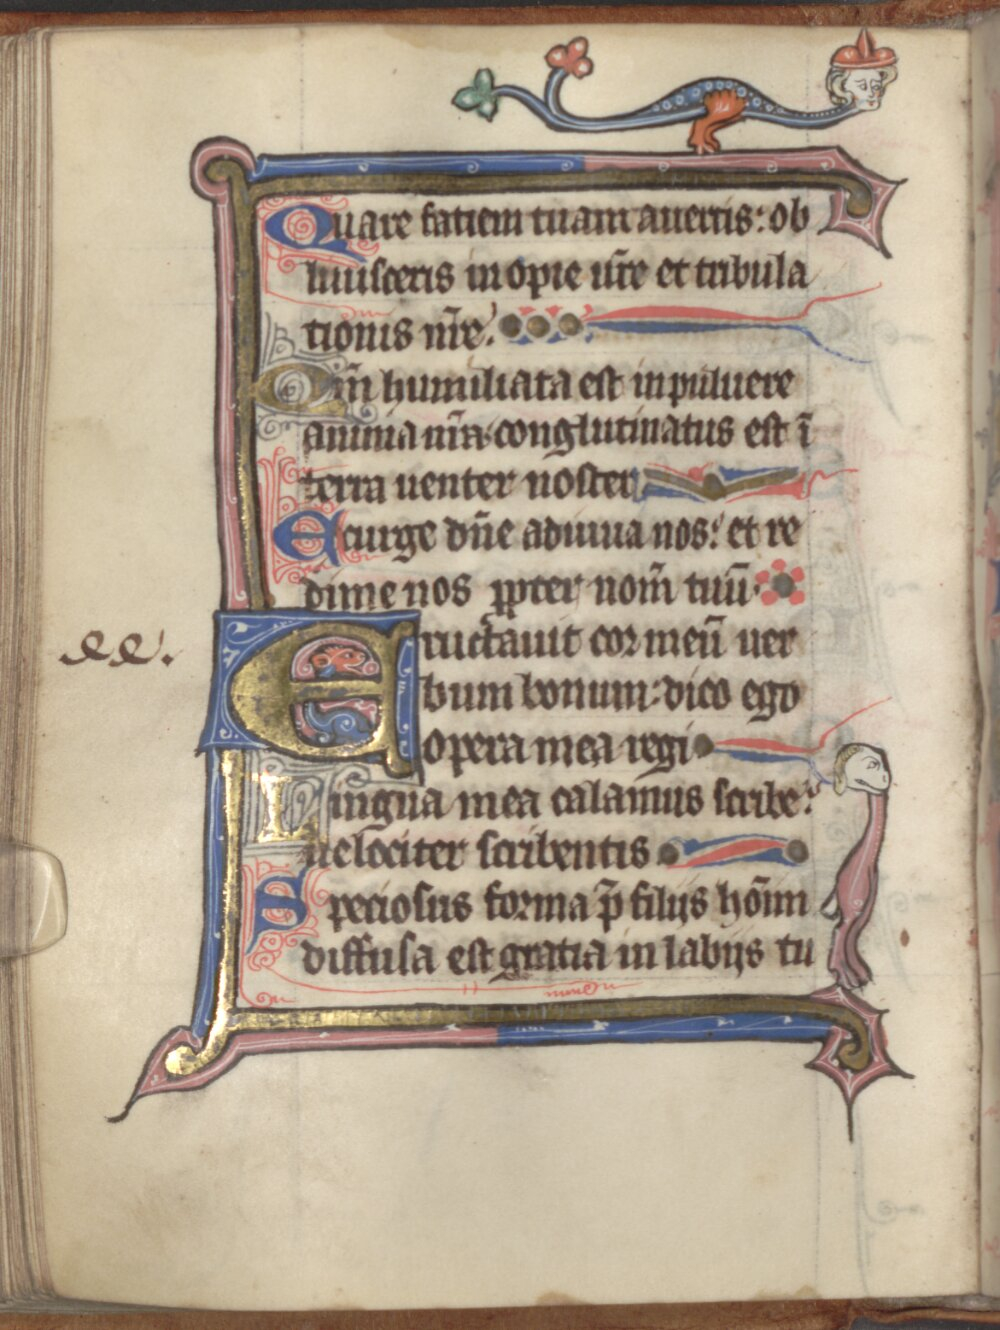 Quare fatiem tuam auertis: ob
liuisceris inopie ur̄e et tribula
tionis nr̄e.
Qm̄ humiliata est in puluere
anima nr̄a. conglutinatus est ī
terra uenter noster
Excurge dn̄e adiuua nos: et re
dime nos ꝓpter nom̄ tuū.
ee.
Eructauit cor meū uer
bum bonum: dico ego
opera mea regi
Lingua mea calamus scribe:
uelociter scribentis
Speciosus forma p̄ filijs hōīm
diffusa est gratia in labijs tu